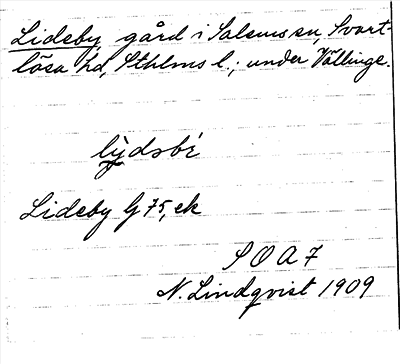 Lideby, gård i Salems sn, Svart-
lösa hd, Sthlms l.; under Vällinge.
lỳdsbè
Lideby G 75, ek
S O A 7
N. Lindqvist 1909